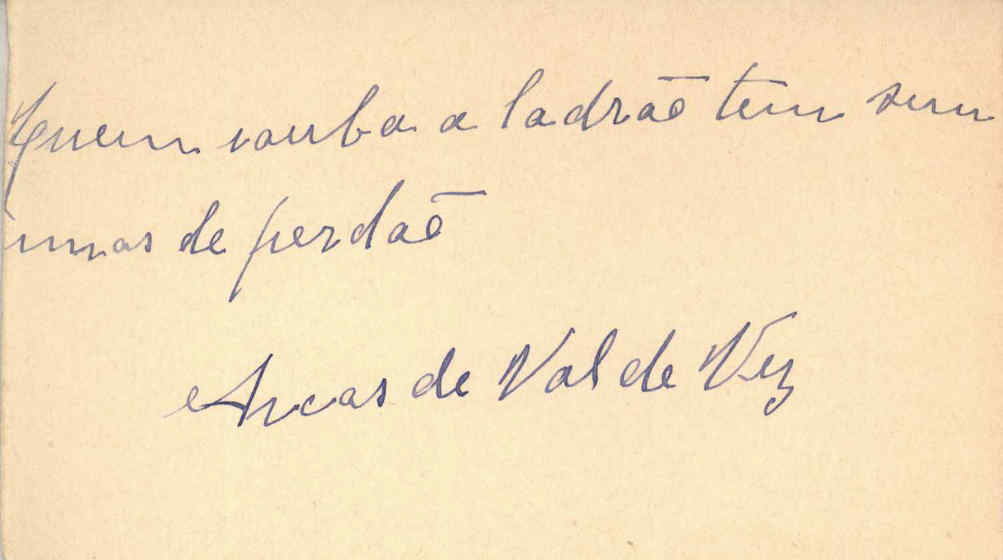 Quem rouba a ladrão tem sem
annos de perdão
Arcos de Val de Vez